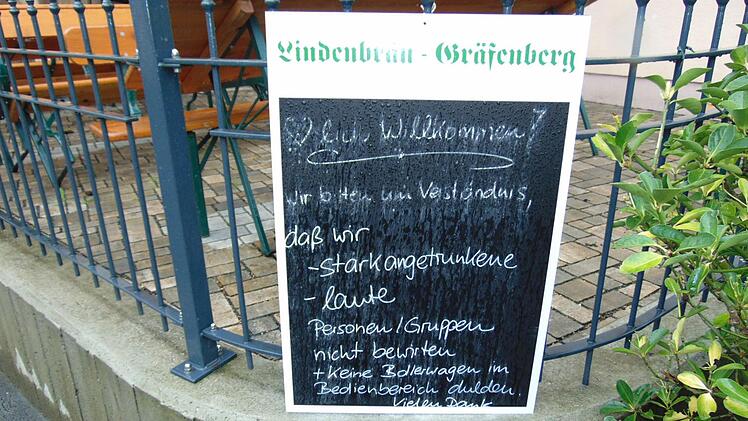 Lindenbräu - Gräfenberg
♡ lich Willkommen!
wir bitten um Verständnis,
daß wir
- stark angetrunkene
- laute
Personen/Gruppen
nicht bewirten
+ Keine Bollerwagen im
Bedienbereich dulden.
Vielen Dank